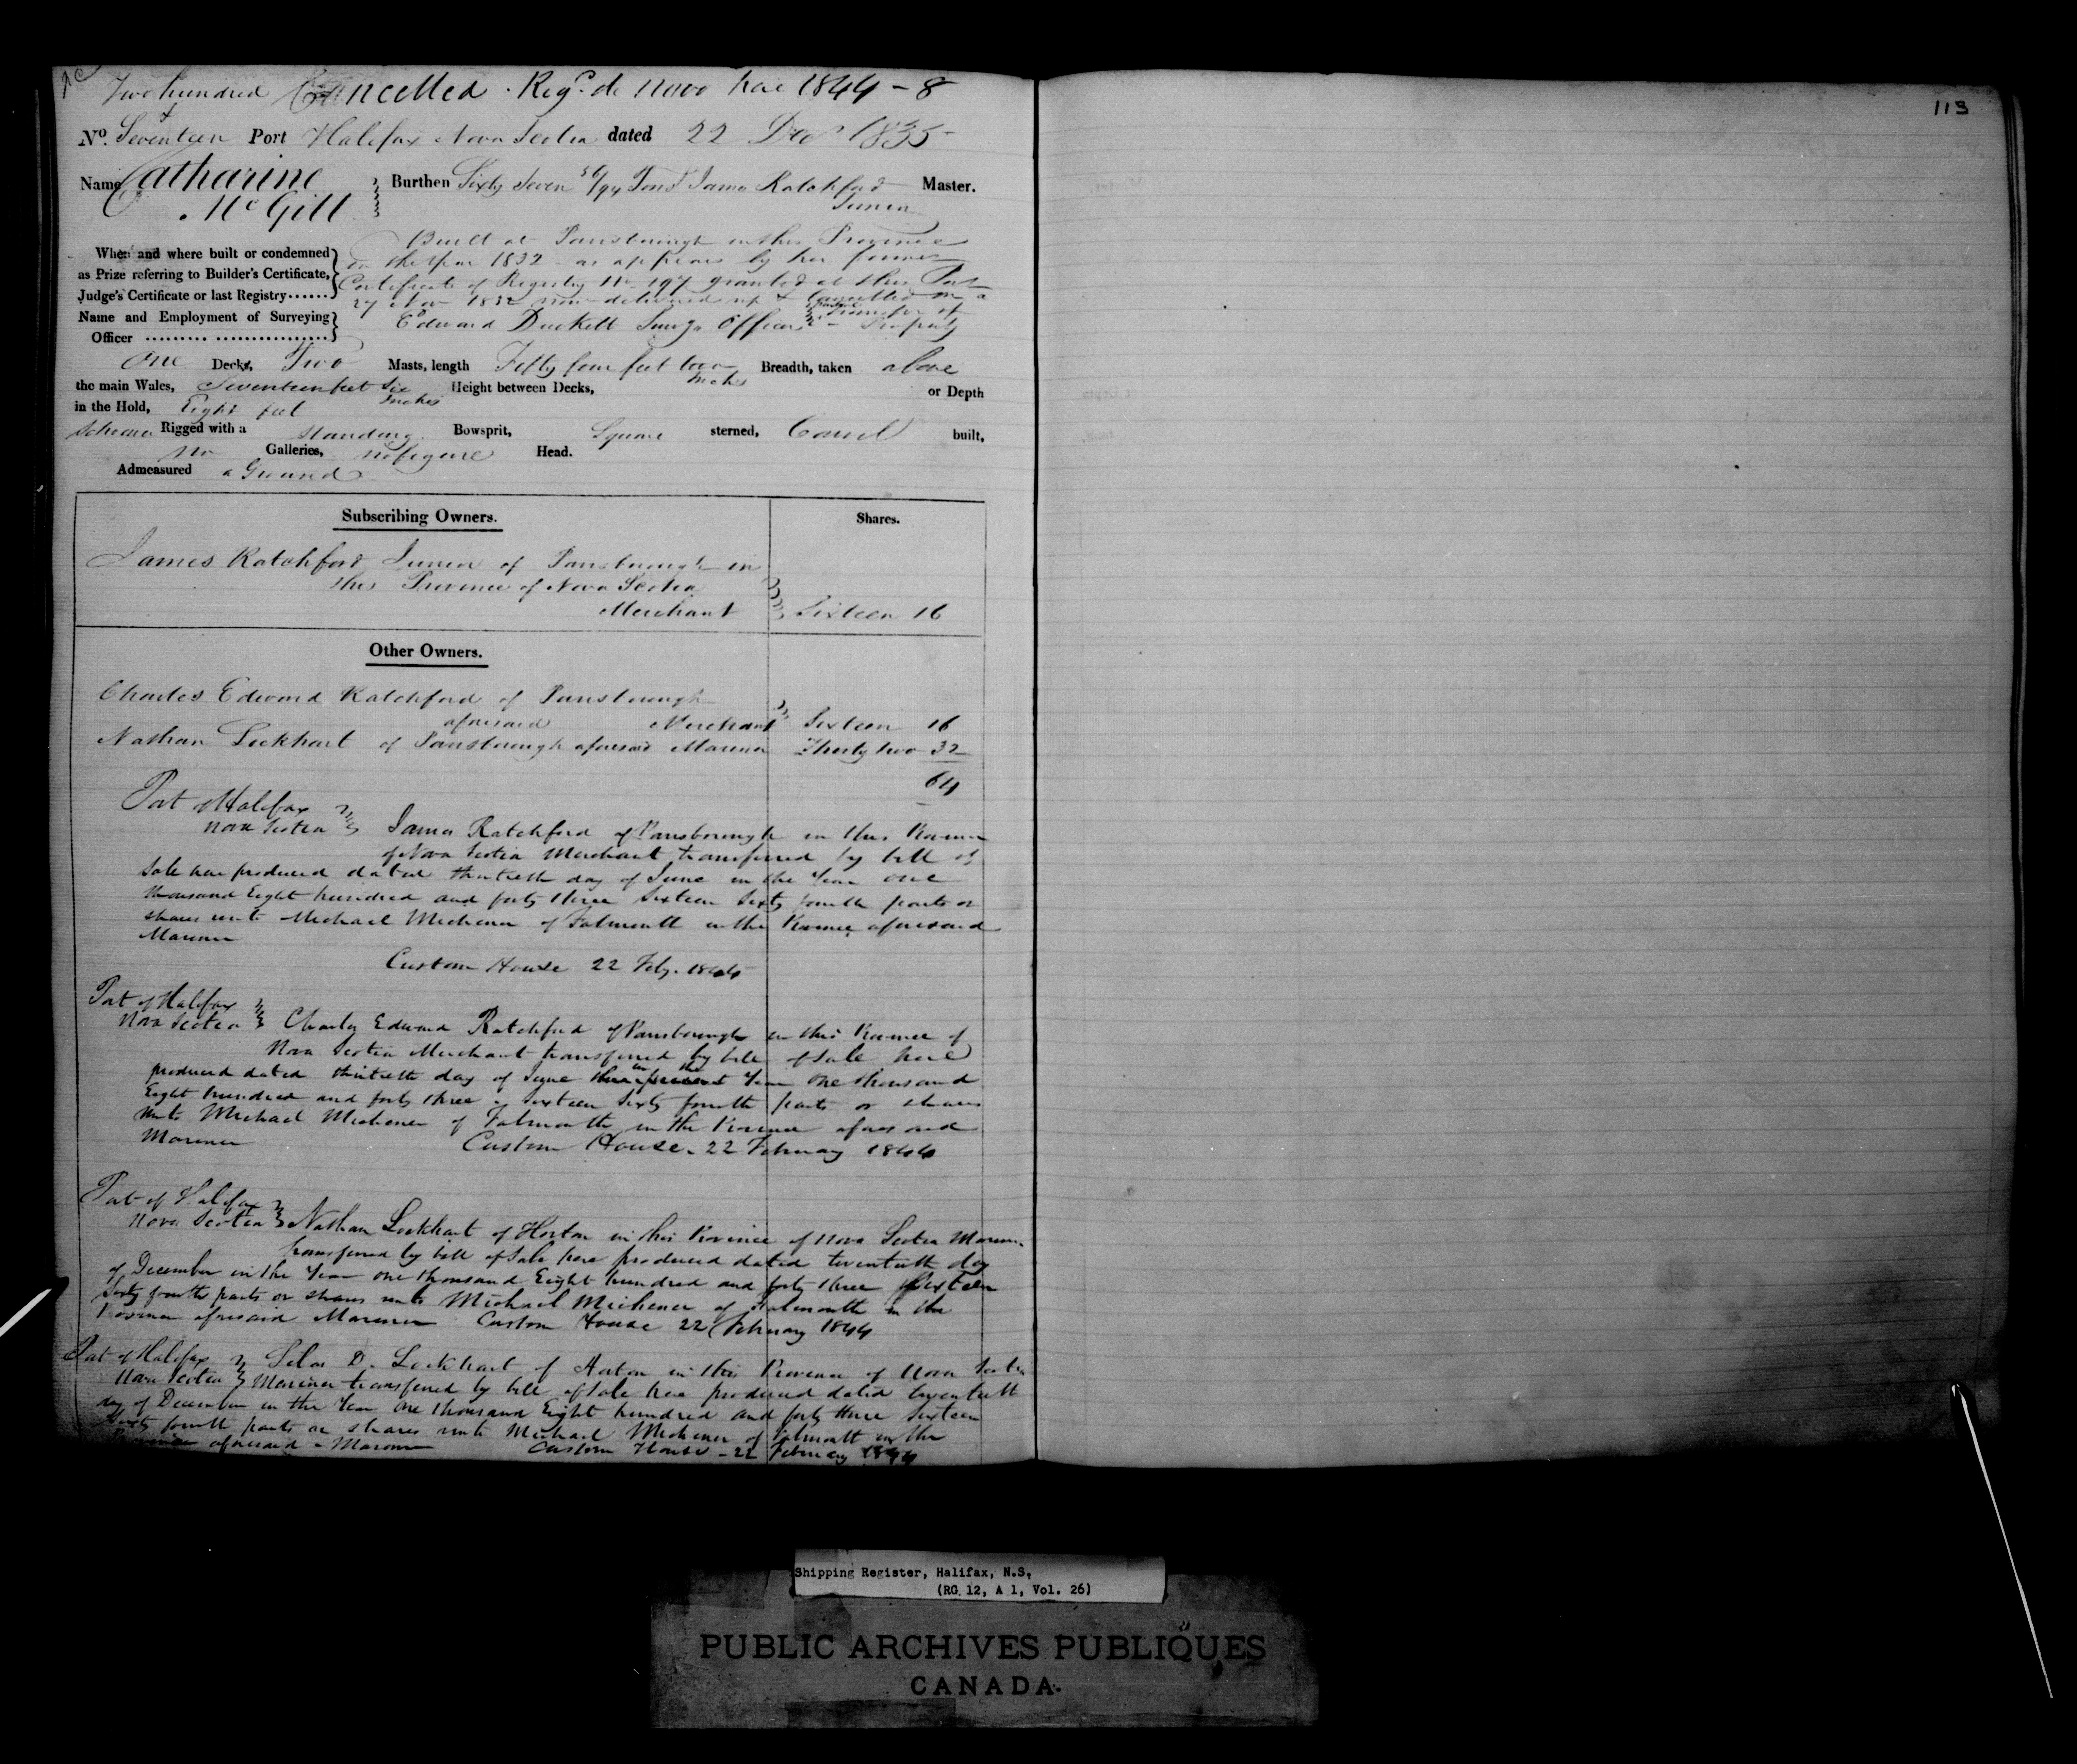 Two hundred Cancelled . Regd. de novo here 1844 - 8
113
& No. Seventeen Port Halifax Nova Scotia dated 22 Decr 1835
Name Catharine McGill Burthen Sixty Seven 56/94 Tons James Ratchford Junior Master.
Built at Parrsborough in this Province
When and where built or condemned in the Year 1832 - as appears by her former
as Prize referring to Builder's Certificate, Certificate of Registry No. 197 granted at this Port
Judge's Certificate or last Registry....... 27 Nov 1832 now delivered up & Cancelled on a
Name and Employment of Surveying transfer of
Officer ......... ................. Edward Duckett Survg Officer - Property
One Decks, Two Masts, length Fifty four feet two Inches Breadth, taken above
the main Wales, Seventeen feet Six Inches Height between Decks, or Depth
in the Hold, Eight feet
Schooner Rigged with a Standing Bowsprit, Square sterned, Carvel built,
no Galleries, no figure Head.
Admeasured a Ground
Subscribing Owners. Shares.
James Ratchford Junior of Parrsborough in
this Province of Nova Scotia
Merchant Sixteen 16
Other Owners.
Charles Edward Ratchford of Parrsborough
aforesaid Merchant Sixteen 16
Nathan Lockhart of Parrsborough aforesaid Mariner Thirty two 32
64
Port of Halifax
Nova Scotia James Ratchford of Parrsborough in this Province
of Nova Scotia Merchant transferred by bill of
Sale here produced dated thirtieth day of June in the Year one
thousand Eight hundred and forty three Sixteen Sixty fourth parts or
shares unto Michael Michener of Falmouth in the Province aforesaid
Mariner
Custom House 22 Feby. 1844
Port of Halifax
Nova Scotia Charles Edward Ratchford of Parrsborough in this Province of
Nova Scotia Merchant transferred by bill of sale here
in the
produced dated thirtieth day of June Year One thousand
Eight hundred and forty three - Sixteen Sixty fourth parts or shares
unto Michael Michener of Falmouth in the Province aforesaid
Mariner Custom House. 22 February 1844
Port of Halifax
Nova Scotia Nathan Lockhart of Horton in this Province of Nova Scotia Mariner
transferred by bill of Sale here produced dated twentieth day
of December in the Year one thousand Eight hundred and forty three Sixteen
Sixty fourth parts or shares unto Michael Michener of Falmouth in the
Province aforesaid Mariner Custom House 22 February 1844
Port of Halifax Silas D. Lockhart of Horton in this Province of Nova Scotia
Nova Scotia Mariner transferred by bill of Sale here produced dated twentieth
day of December in the Year One thousand Eight hundred and forty three Sixteen
Sixty fourth parts or shares unto Michael Michener of Falmouth in the
Province aforesaid - Mariner Custom House - 22 February 1844
Shipping Register, Halifax, N.S.
(RG 12, A 1, Vol. 26)
PUBLIC ARCHIVES PUBLIQUES
CANADA.